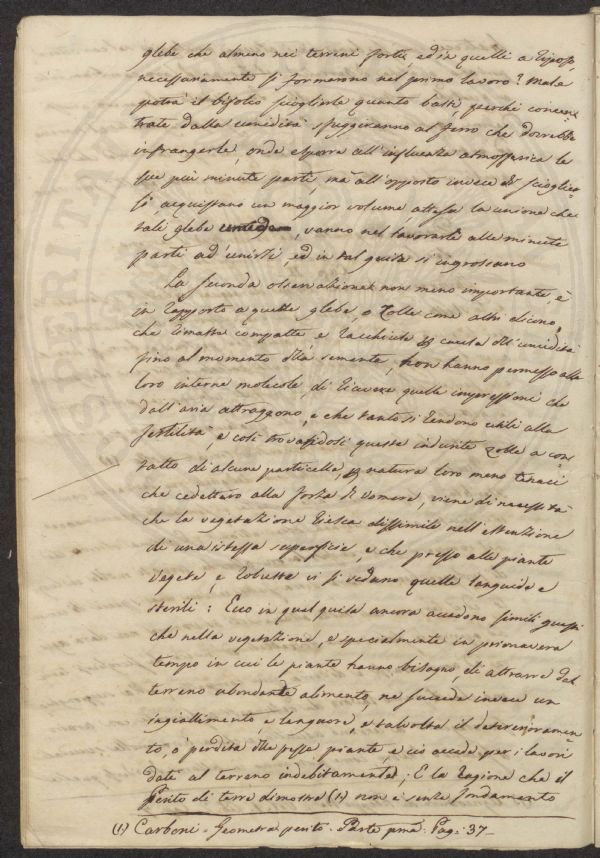 glebe che almeno nei terreni forti, ed in quelli a riposo,
necessariamente si formarono nel primo lavoro? Ma la
potrà il bifolco sciogliarle quanto basti, perchè concen=
trate dalla umidità sfuggiranno al ferro che dovrebbe
infrangerle, onde esporre all'influenza atmosferica le
sue più minute parti, mà all'opposto invece di scioglier=
si, acquistano un maggior volume attesa la unione che
tali glebe, vanno nel lavorarsi alle minute
parti ad unirsi, ed in tal guisa si ingrossano
La seconda osservazione non meno importante, è
in rapporto a quelle glebe, o Zolle come altri dicono,
che rimaste compatte e racchiuse a causa dell'umidità
fino al momento della semente, non hanno permesso alle
loro interne molecole, di ricevere quelle impressioni che
dall'aria attraggono, e che tanto si rendono utili alla
fertilità, e così trovandosi queste indurite zolle a con=
tatto di alcune particelle, per natura loro meno tenaci
che cedettero alla forza del vomere, viene di necessità
che la vegetazione riesca dissimile nell'estenzione
di una istessa superficie, e che presso alle piante
vegete, e robuste vi si vedano quelle languide e
sterili: Ecco in qual guisa ancora accadono simili guasti
che nella vegetazione, e specialmente in primavera
tempo in cui le piante hanno bisogno, di attrarre dal
terreno abondante alimento, ne succede invece un
ingiallimento, e languore, e talvolta il deterioramen=
to, o perdita della stessa piante, e ciò accade per i lavori
dati al terreno indebitamente; E la ragione che il
Perito di terre dimostra (1) non è senza fondamento
(1) Carboni - Geometra perito - Parte pma: Pag: 37-